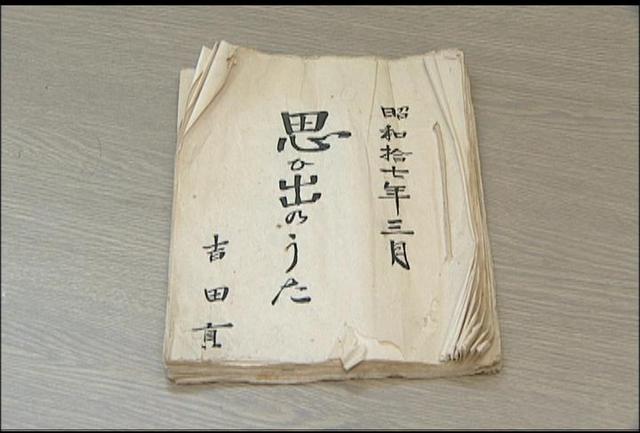 昭和拾七年三月
思ひ出のうた
吉田